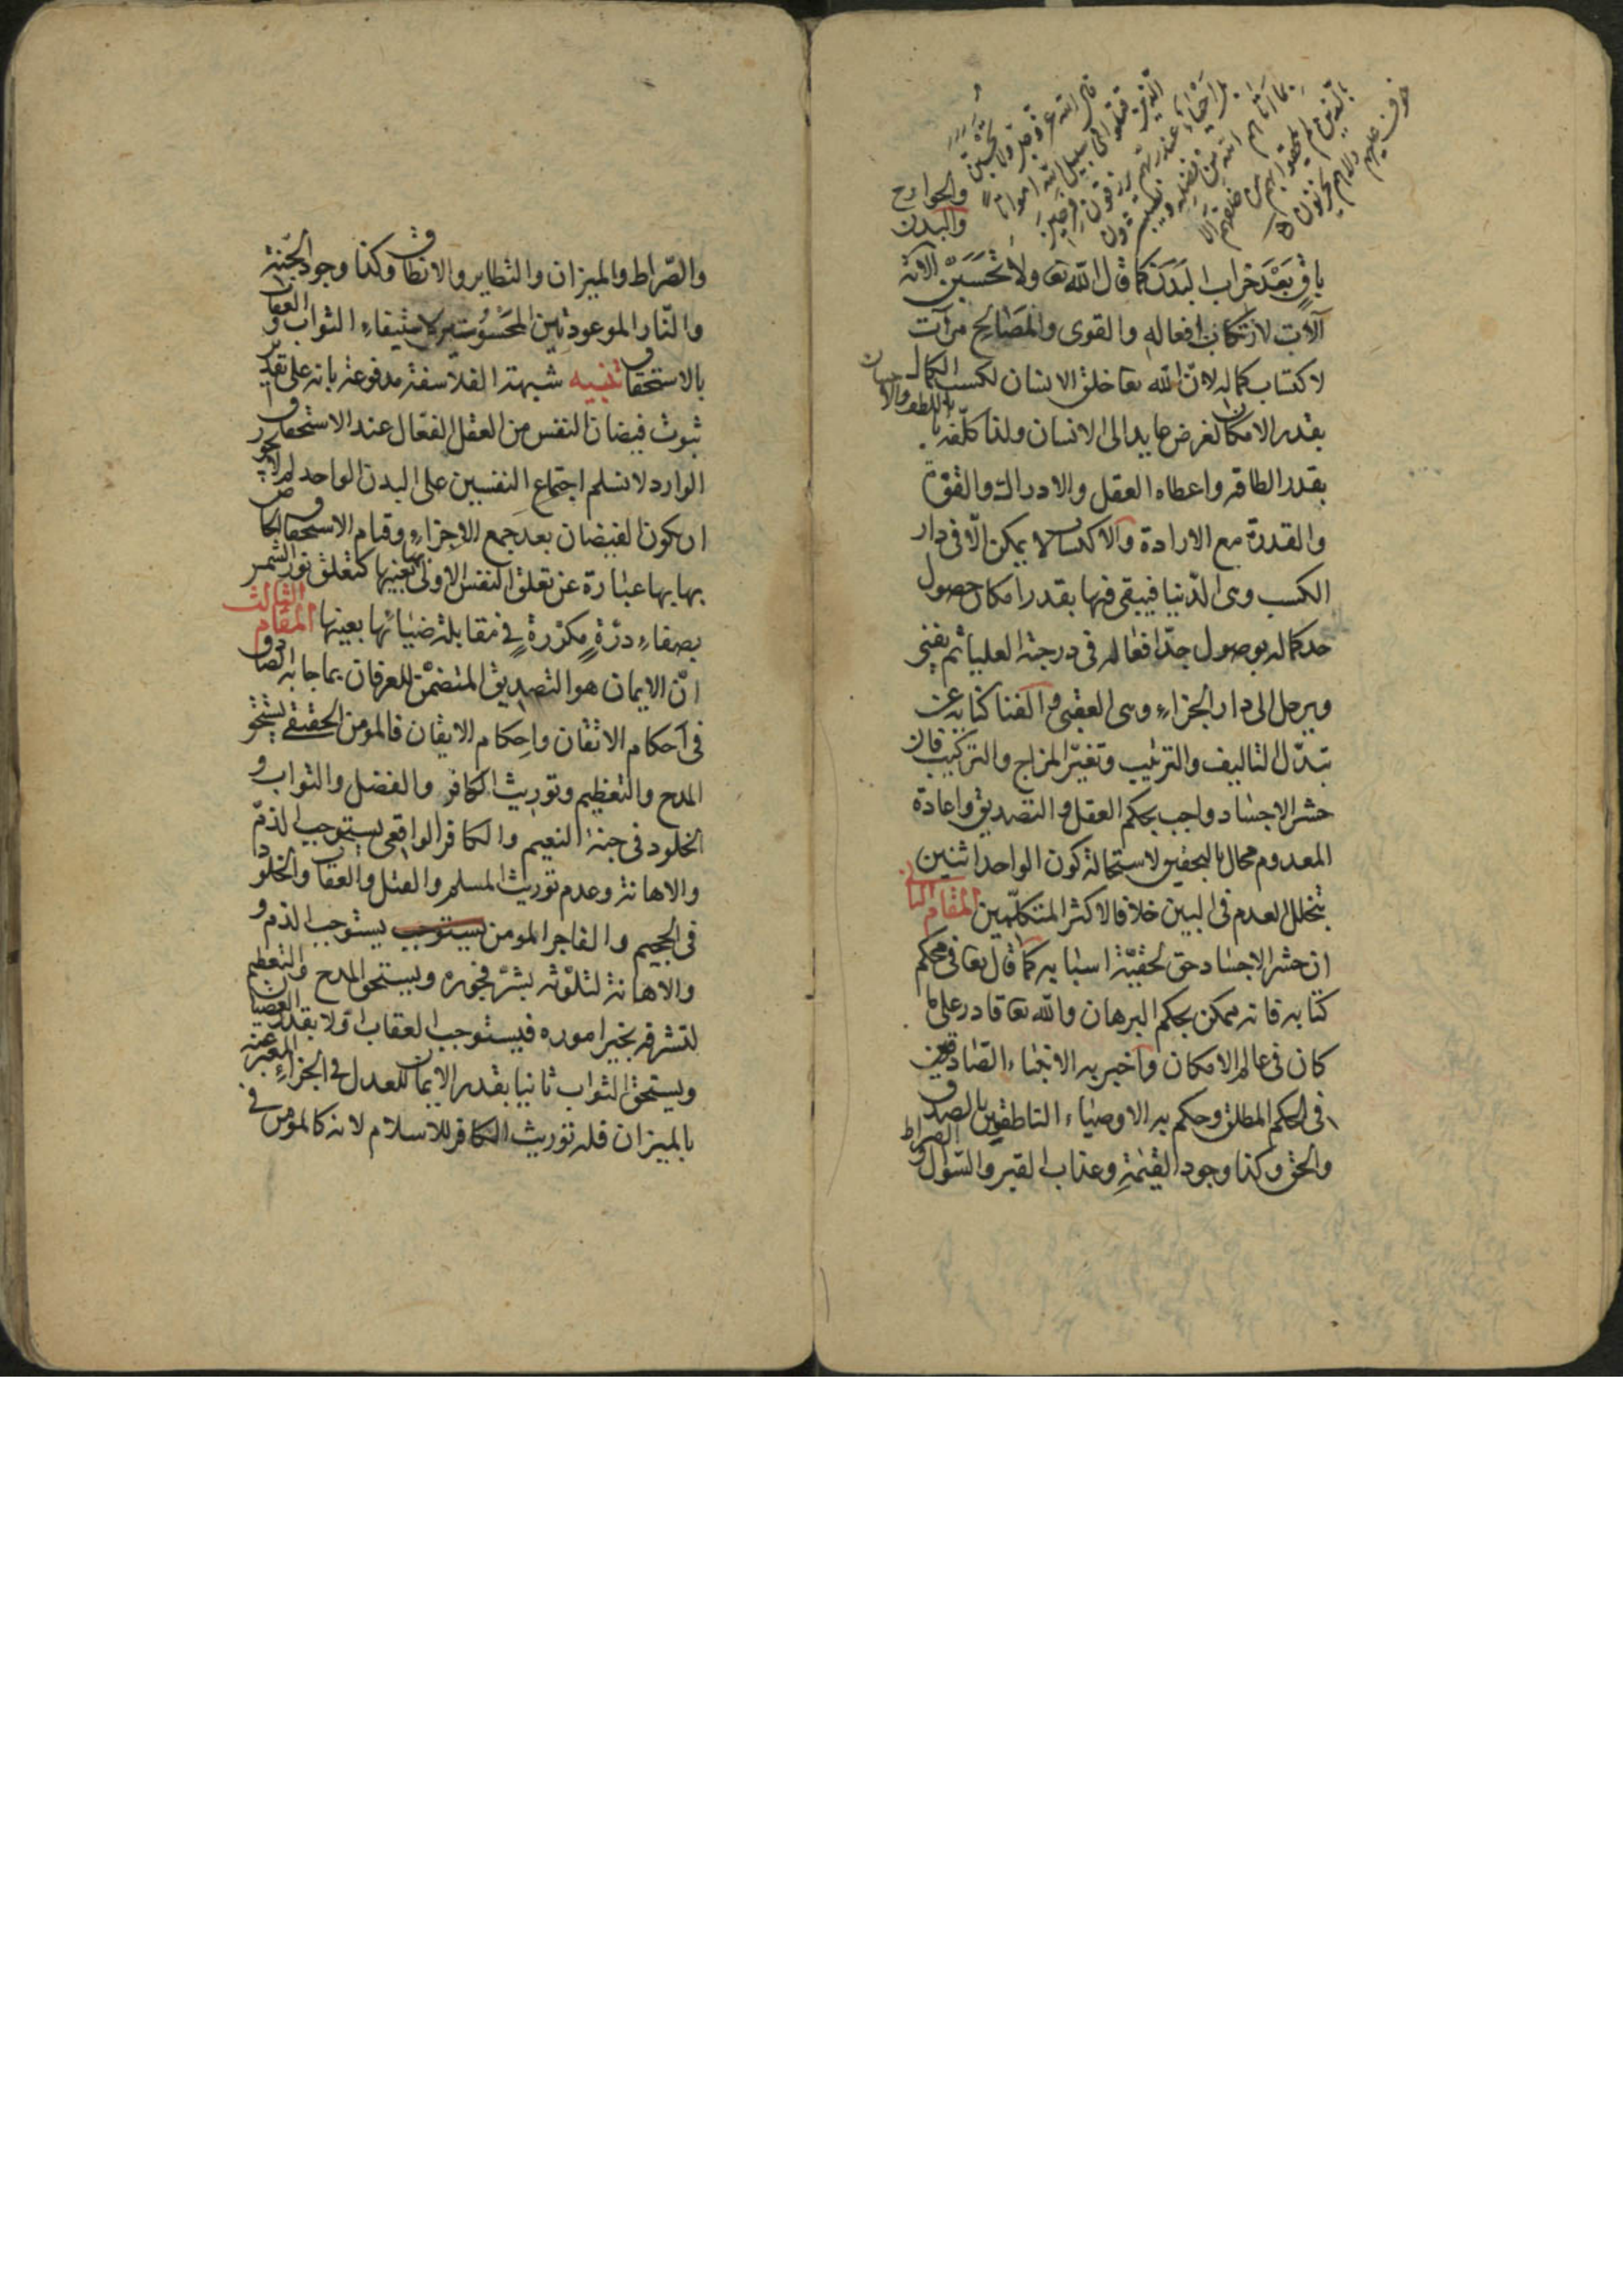 قال الله عز وجل ولا تحسبن
الذين قتلوا فى سبيل الله امواتا
بل احياء عند ربهم يرزقون فرحين
بما اتاهم الله من فضله ويستبشرون
بالذين لم يلحقوا بهم من خلفهم الا
خوف عليهم ولا هم يحزنون
والجوارح
والبدن
باقٍ بَعْدَ خراب البَدَن كما قال الله تعا ولا تَحْسَبَنَّ الآية
آلات لارتكاب افعاله والقوى والمصَالح مرآت
لاكتساب كماله لان الله تعا خلق الانسان لكسب الكمال
بقدر الامكان لغرض عايد الى الانسان ولذا كلّفه باللطف والاحسان
بقدر الطاقة واعطاه العقل والادراك والقوّة
والقدرة مع الارادة والاكتساب لا يمكن الّا فى دار
الكسب وهى الدّنيا فيبقى فيها بقدر امكان حصول
حد كماله بوصول جدّ افعاله فى درجته العليا ثم يفنى
ويرحل الى دار الجزاء وهى العقبى والفنا كناية عن
تبدّل التاليف والترتيب وتغيّر المزاج والتركيب فان
حشر الاجساد واجب بحكم العقل والتصديق واعادة
المعدوم محال بالتحقيق لاستحالة كون الواحد اثنين
بتخلل العدم فى البين خلافا لاكثر المتكلّمين المقام الثانى
ان حشر الاجساد حق لحقيّة اسبابه كما قال تعا فى محكم
كتابه فانه ممكن بحكم البرهان والله تعا قادر على ما
كان فى عالم الامكان واخبر به الانبياء الصّادقين
فى الحكم المطلق وحكم به الاوصياء الناطقين بالصدق
والحق وكذا وجود القيمة وعذاب القبر والسّؤال والصراط
والصّراط والميزان والتطاير والانطاق وكذا وجود الجنّة
والنّار الموعودتين المحسُوستين لاستيفاء الثواب والعقاب
بالاستحقاق تنبيه شبهة الفلاسفة مدفوعة بانه على تقدير
ثبوت فيضان النفس من العقل الفعّال عند الاستحقاق
الوارد لا نسلم اجتماع النفسين على البدن الواحد لم لا يجوز
ان يكون الفيضان بعد جمع الاجزاء وقيام الاستحقاق الخاص
بها بها عبارة عن تعلق النفس الاولى بعينها كتعلق نور الشمس
بصفاء درّةٍ مكرّرةٍ فى مقابلة ضيائها بعينها المقام الثالث
انّ الايمان هو التصديق المتضمن للعرفان بما جا به الصادق
فى احكام الاتقان واحكام الايقان فالمومن الحقيقى يستحق
المدح والتعظيم وتوريث الكافر والفضل والثواب و
الخلود فى جنة النعيم والكافر الواقعى يستوجب الذمّ
والاهانة وعدم توريث المسلم والقتل والعقاب والخلود
فى الجحيم والفاجر المومن يستوجب يستوجب الذم و
والاهانة لتلوّثه بشرّ فجوره ويستحق المدح والتعظيم
لتشرفه بخير اموره فيستوجب العقاب اوّلا بقدر العصيان
ويستحق الثواب ثانيا بقدر الايمان للعدل فى الجزاء المعبر عنه
بالميزان فله توريث الكافر للاسلام لانه كالمؤمن فى